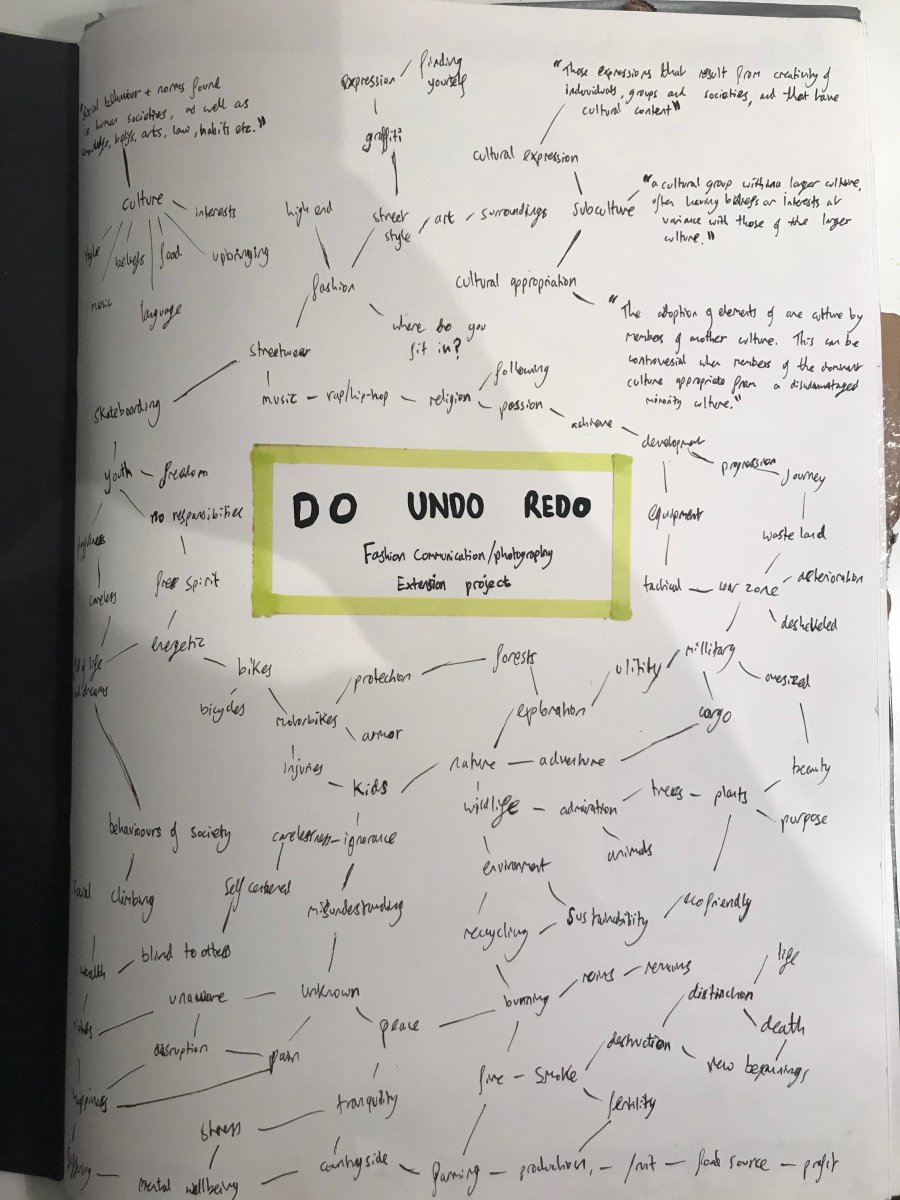 expression / finding
yourself
graffiti
"Those expressions that result from creativity of
individuals, groups and societies, and that have
cultural content"
"social behaviour + norms found
in human societies, as well as
knowledge, beliefs, arts, law, habits etc."
cultural expression
culture
interests
style
beliefs
food
upbringing
music
language
high end
street
style
art
surroundings
subculture
"a cultural group within a larger culture,
often having beliefs or interests at
variance with those of the larger
culture."
fashion
cultural appropriation
where do you
fit in?
"The adoption of elements of one culture by
members of another culture. This can be
controvesial when members of the dominant
culture appropriate from a disadvantaged
minority culture."
streetwear
music - rap/hip-hop - religion
following
passion
achieve
development
progression
journey
skateboarding
youth
freedom
no responsibilities
free spirit
careless
energetic
equipment
waste land
tactical
war zone
deterioration
desheveled
DO UNDO REDO
Fashion Communication/photography
Extension project
bikes
bicycles
motorbikes
protection
forests
armor
injuries
kids
exploration
utility
millitary
oversized
cargo
nature
adventure
wildlife
admiration
trees
plants
beauty
purpose
animals
behaviours of society
carelessness
ignorance
environment
social
climbing
self centered
misunderstanding
recycling
sustainability
ecofriendly
wealth
blind to others
unaware
unknown
peace
burning
remains
distinction
life
death
riches
disruption
pain
fire - smoke
destruction
new beginnings
happiness
tranquility
fertility
stress
mental wellbeing
countryside
farming - production
fruit - food source - profit